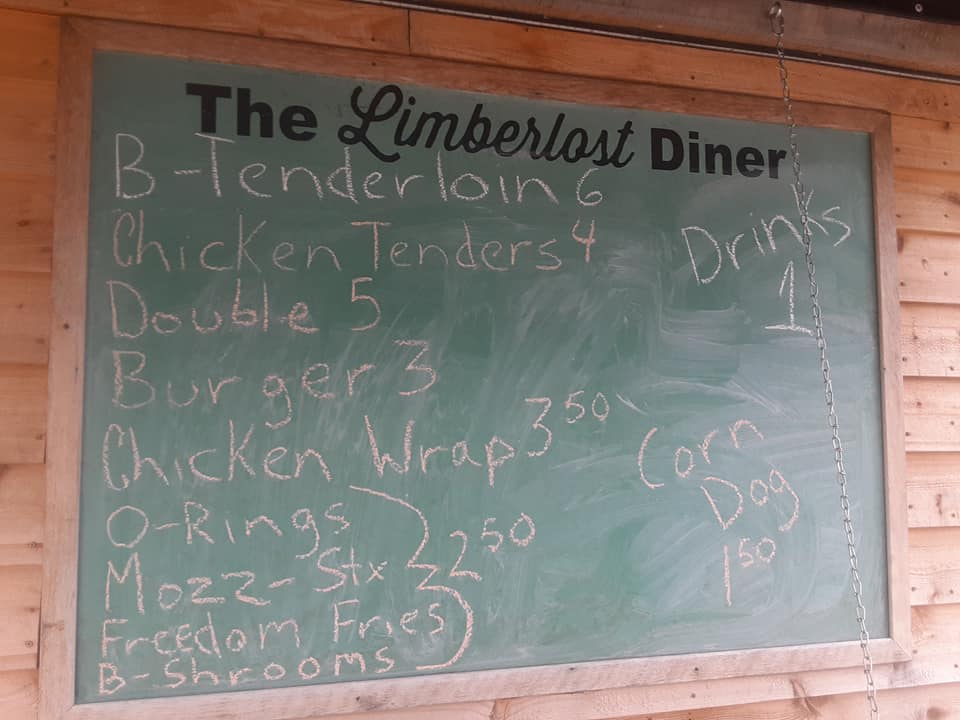 The Limberlost Diner
B-Tenderloin 6
Chicken Tenders 4
Double 5
Burger 3
Chicken Wrap 3 50
O-Rings
Mozz-Stx
Freedom Fries
B-Shrooms
2 50
Drinks
1
Corn
Dog
1 50